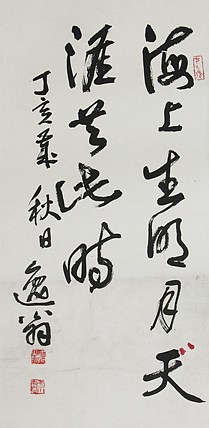 海上生明月天
涯共此时
丁亥年秋日逸翁